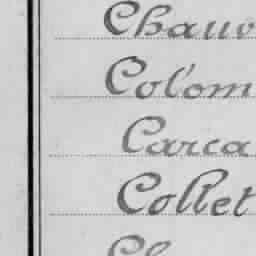 Chauv
Colom
Carca
Collet
Ch